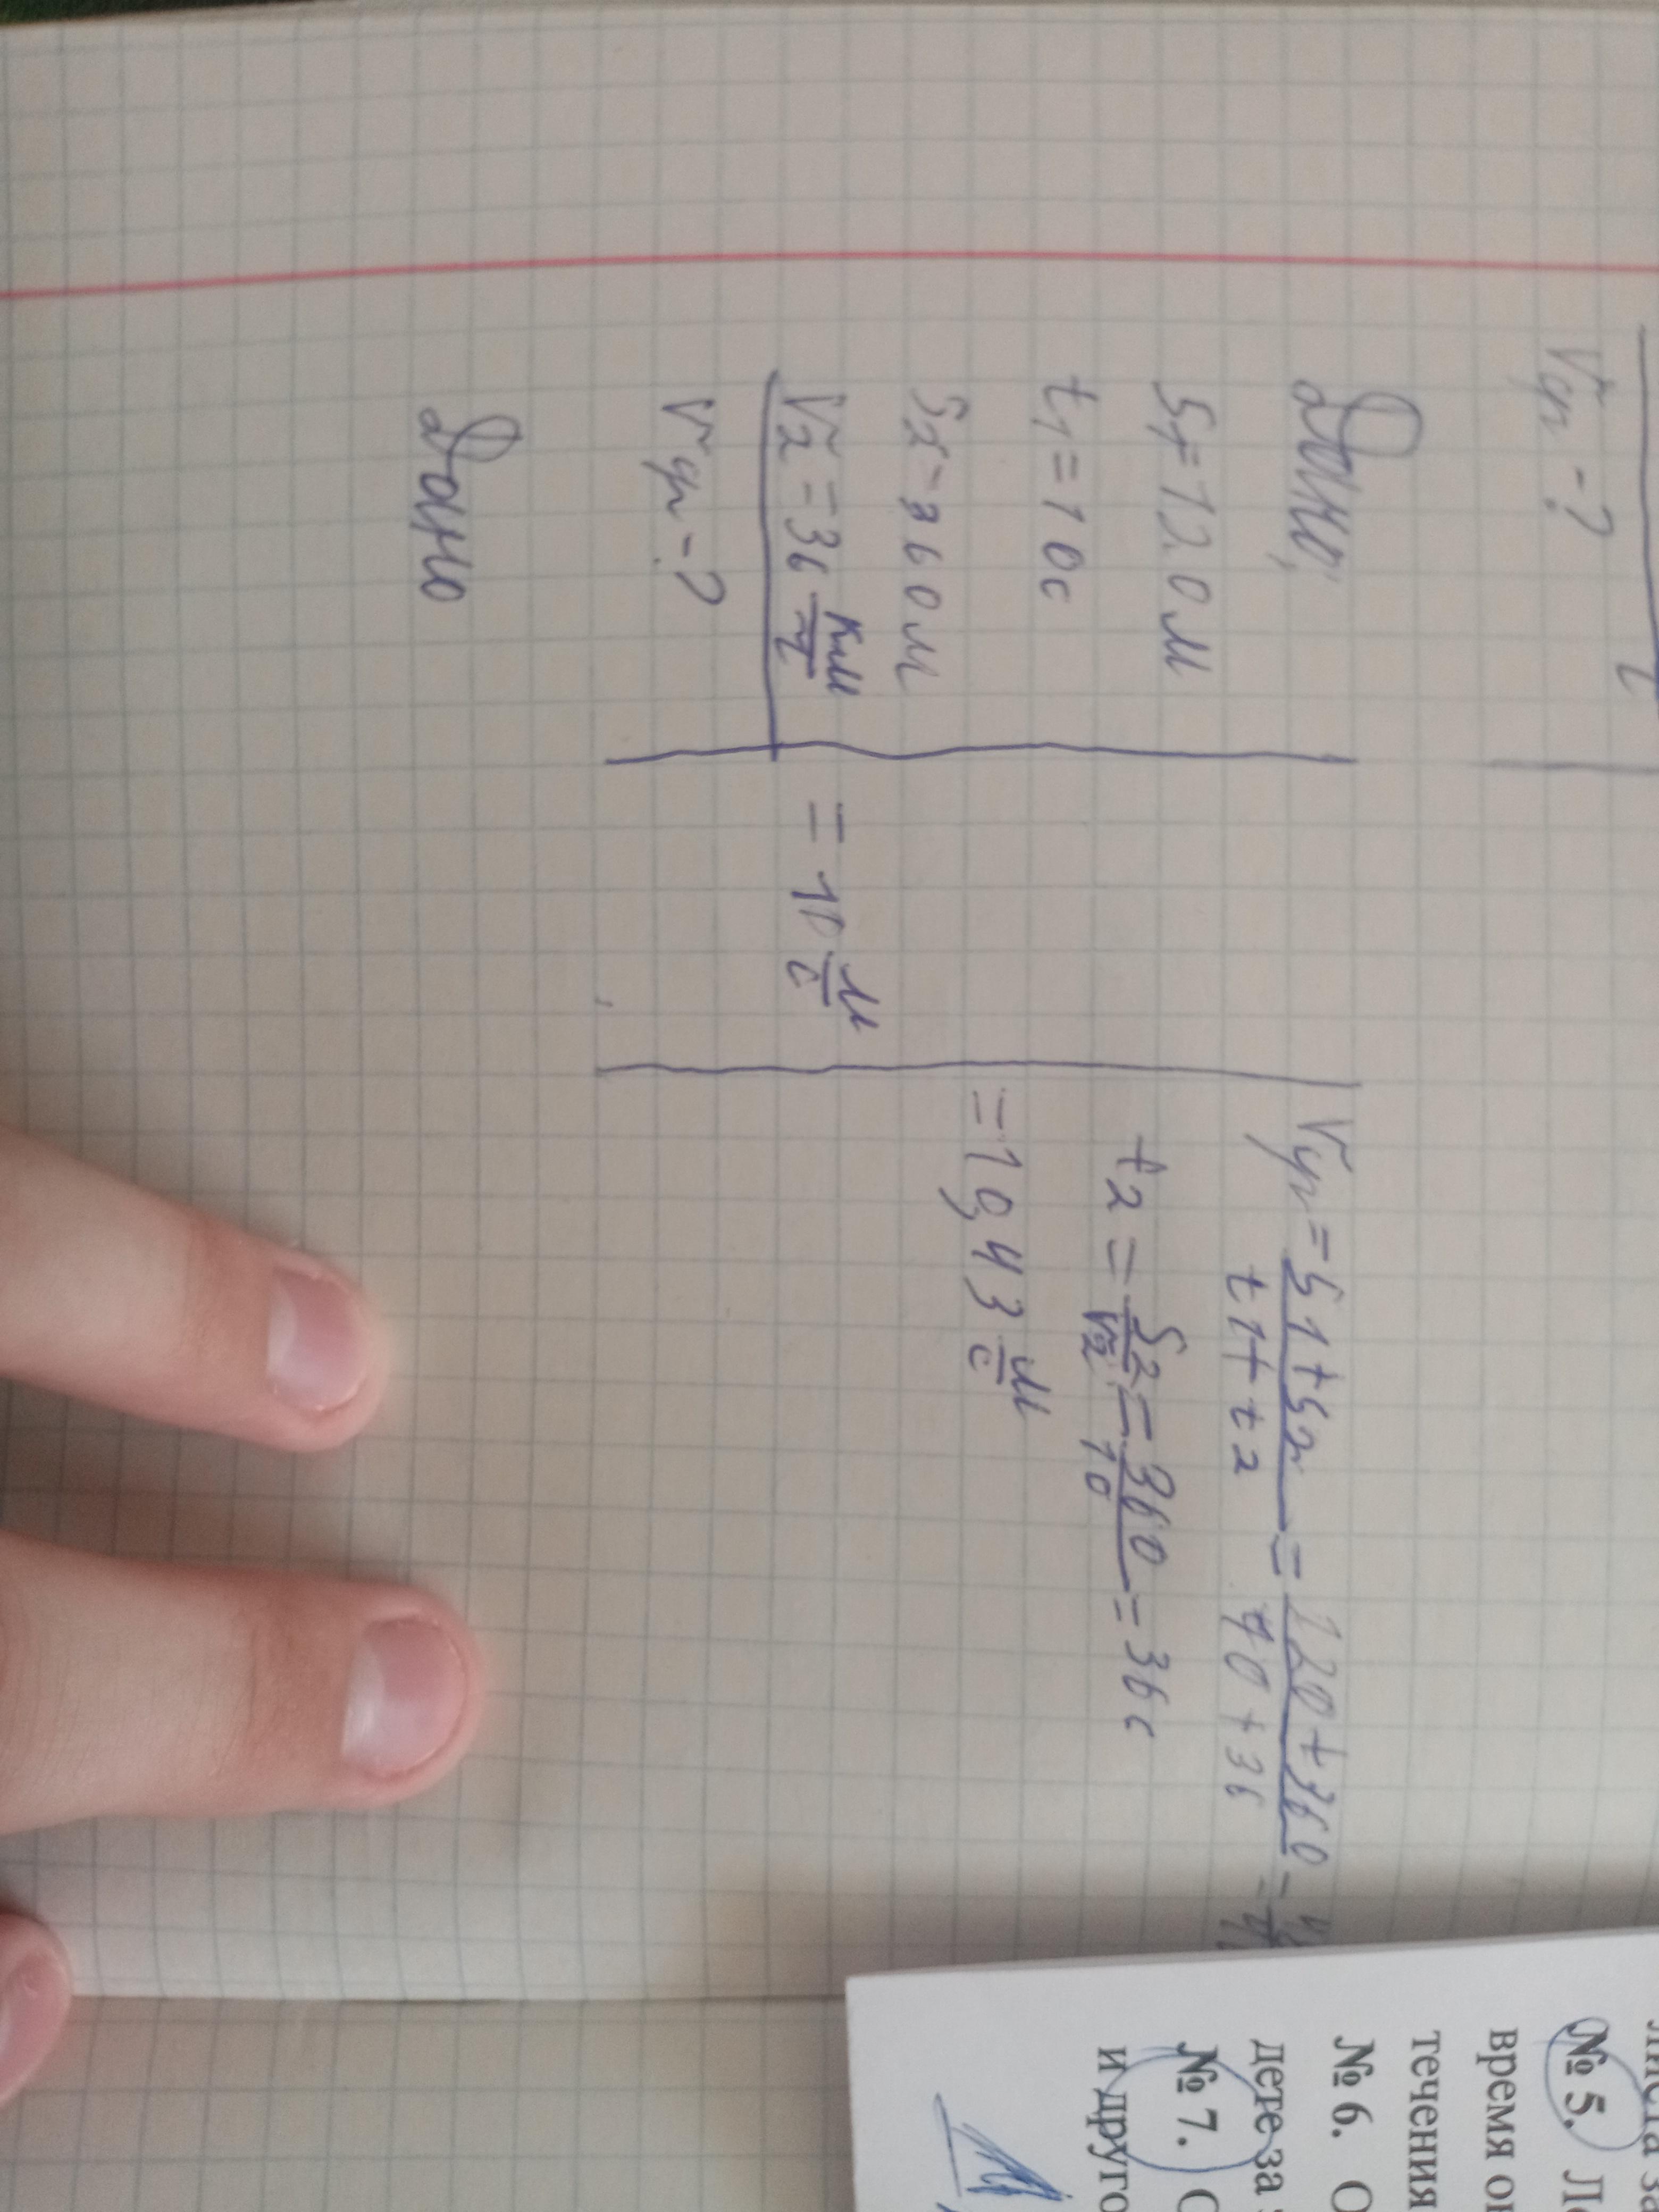 Vср - ?
Дано:
S1=120м
t1=10с
S2=360м
V2=36 км/ч
Vср-?
=10 м/с
Vср = S1+S2 / t1+t2 = 120+360 / 10+36 =
t2 = S2/V2 = 360/10 = 36с
=10,43 м/с
Дано
№ 5.
время
течения
№ 6.
дете за
№ 7.
и друго